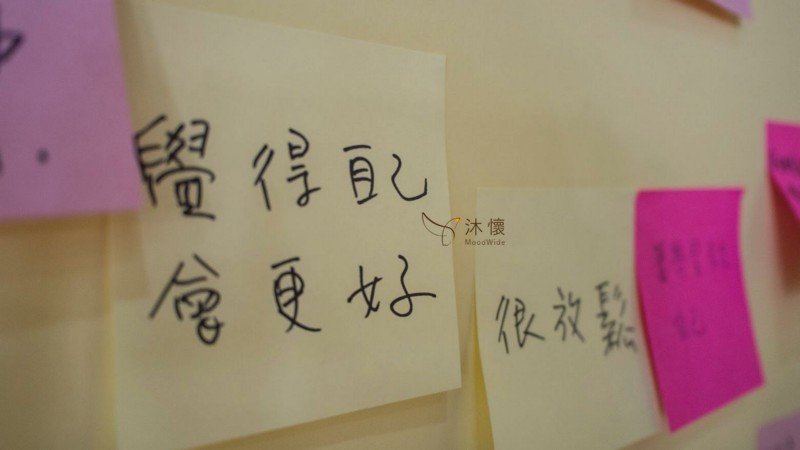 覺得自己
會更好
沐懷
MoodWide
很放鬆